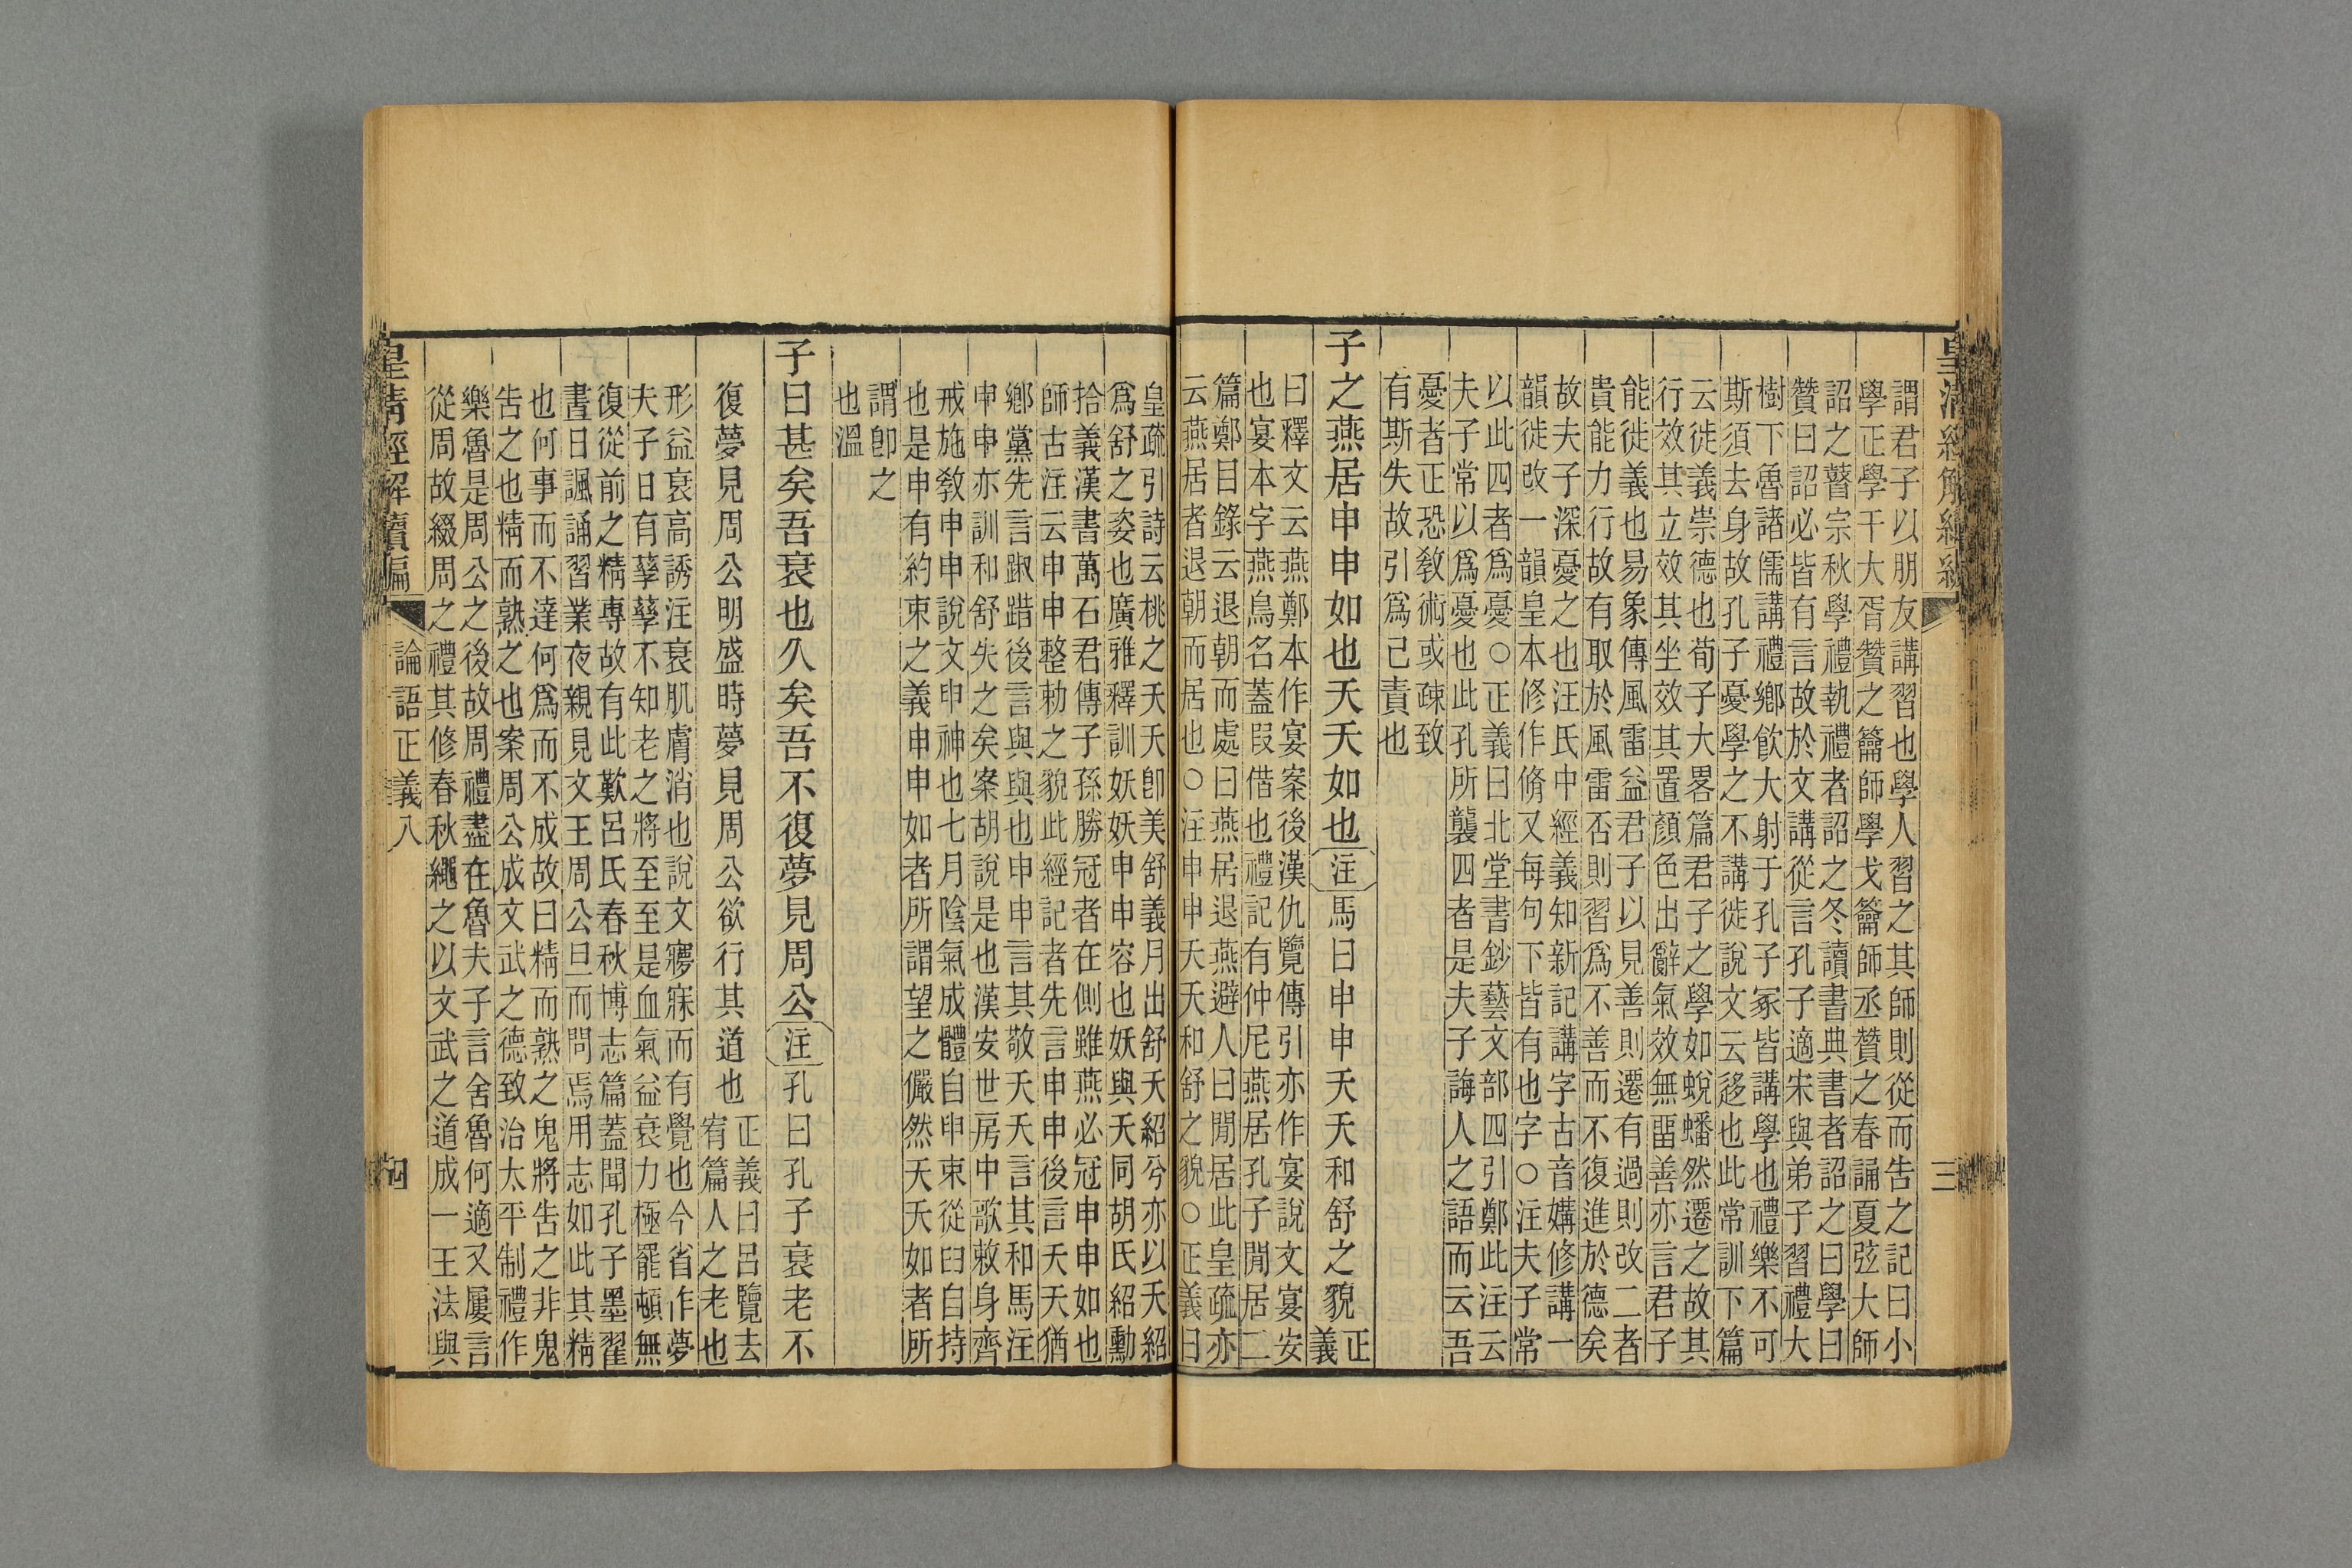 謂君子以朋友講習也學人習之其師則從而告之記曰小
學正學干大胥贊之籥師學戈籥師丞贊之春誦夏弦大師
詔之瞽宗秋學禮執禮者詔之冬讀書典書者詔之曰學曰
贊曰詔必皆有言故於文講從言孔子適宋與弟子習禮大
樹下魯諸儒講禮鄉飲大射于孔子冢皆講學也禮樂不可
斯須去身故孔子憂學之不講徙說文云迻也此常訓下篇
云徙義崇德也荀子大畧篇君子之學如蛻蟠然遷之故其
行效其立效其坐效其置顏色出辭氣效無畱善亦言君子
能徙義也易象傳風雷益君子以見善則遷有過則改二者
貴能力行故有取於風雷否則習爲不善而不復進於德矣
故夫子深憂之也汪氏中經義知新記講字古音媾修講一
韻徙改一韻皇本修作脩又每句下皆有也字○注夫子常
以此四者爲憂○正義曰北堂書鈔藝文部四引鄭此注云
夫子常以爲憂也此孔所襲四者是夫子誨人之語而云吾
憂者正恐敎術或疎致
有斯失故引爲己責也
子之燕居申申如也夭夭如也注馬曰申申夭夭和舒之貌正
義
曰釋文云燕鄭本作宴案後漢仇覽傳引亦作宴說文宴安
也宴本字燕鳥名蓋叚借也禮記有仲尼燕居孔子閒居二
篇鄭目錄云退朝而處曰燕居退燕避人曰閒居此皇疏亦
云燕居者退朝而居也○注申申夭夭和舒之貌○正義曰
皇疏引詩云桃之夭夭卽美舒義月出舒夭紹兮亦以夭紹
爲舒之姿也廣雅釋訓妖妖申申容也妖與夭同胡氏紹勳
拾義漢書萬石君傳子孫勝冠者在側雖燕必冠申申如也
師古注云申申整勅之貌此經記者先言申申後言夭夭猶
鄉黨先言踧踖後言與與也申申言其敬夭夭言其和馬注
申申亦訓和舒失之矣案胡說是也漢安世房中歌敕身齊
戒施敎申申說文申神也七月陰氣成體自申束從臼自持
也是申有約束之義申申如者所謂望之儼然夭夭如者所
謂卽之
也溫
子曰甚矣吾衰也久矣吾不復夢見周公注孔曰孔子衰老不
復夢見周公明盛時夢見周公欲行其道也正義曰呂覽去
宥篇人之老也
形益衰高誘注衰肌膚消也說文㝱寐而有覺也今省作夢
夫子日有孳孳不知老之將至至是血氣益衰力極罷頓無
復從前之精專故有此歎呂氏春秋博志篇蓋聞孔子墨翟
晝日諷誦習業夜親見文王周公旦而問焉用志如此其精
也何事而不達何爲而不成故曰精而熟之鬼將告之非鬼
告之也精而熟之也案周公成文武之德致治太平制禮作
樂魯是周公之後故周禮盡在魯夫子言舍魯何適又屢言
從周故綴周之禮其修春秋繩之以文武之道成一王法與
皇淸經解續編
論語正義八
四
三